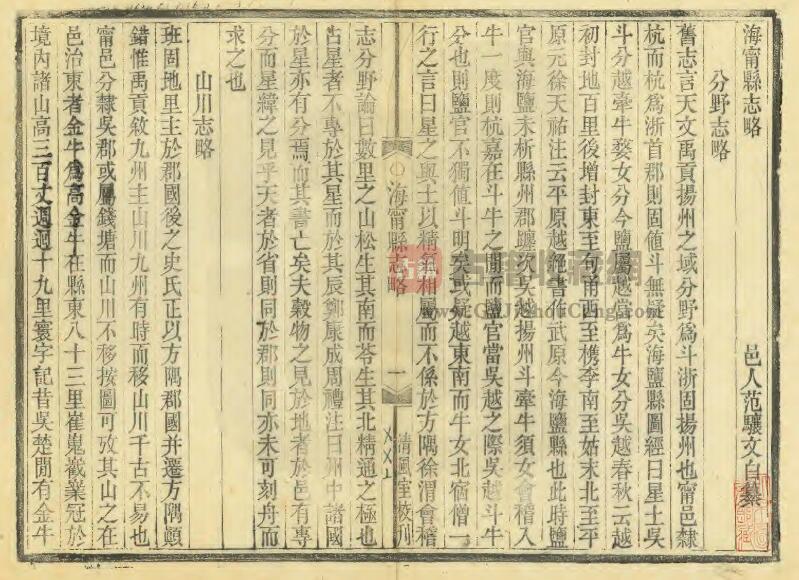 海甯縣志略
邑人范驤文白纂
分野志略
舊志言天文禹貢揚州之域分野為斗浙固揚州也甯邑隸
杭而杭為浙首郡則固值斗無疑矣海鹽縣圖經曰星土吳
斗分越牽牛婺女分今鹽屬越當為牛女分吳越春秋云越
初封地百里後增封東至句甬西至檇李南至姑末北至平
原元徐天祐注云平原越絕書作武原今海鹽縣也此時鹽
官與海鹽未析縣州郡躔次吳越揚州斗牽牛須女會稽入
牛一度則杭嘉在斗牛之間而鹽官當吳越之際吳越斗牛
分也則鹽官不獨值斗明矣或疑越東南而牛女北宿僧一
行之言曰星之與土以精氣相屬而不係於方隅徐渭會稽
海甯縣志略
一
清風室校刊
志分野論曰數里之山松生其南而苓生其北精通之極也
占星者不專於其星而於其辰鄭康成周禮注曰州中諸國
於星亦有分焉而其書亡矣夫穀物之見於地者於邑有專
分而星緯之見乎天者於省則同於郡則同亦未可刻舟而
求之也
山川志略
班固地里主於郡國後之史氏正以方隅郡國并遷方隅顛
錯惟禹貢敘九州主山川九州有時而移山川千古不易也
甯邑分隸吳郡或屬錢塘而山川不移按圖可攷其山之在
邑治東者金牛為高金牛在縣東八十三里崔嵬巀嶪冠於
境內諸山高三百丈週迴十九里寰宇記昔吳楚間有金牛